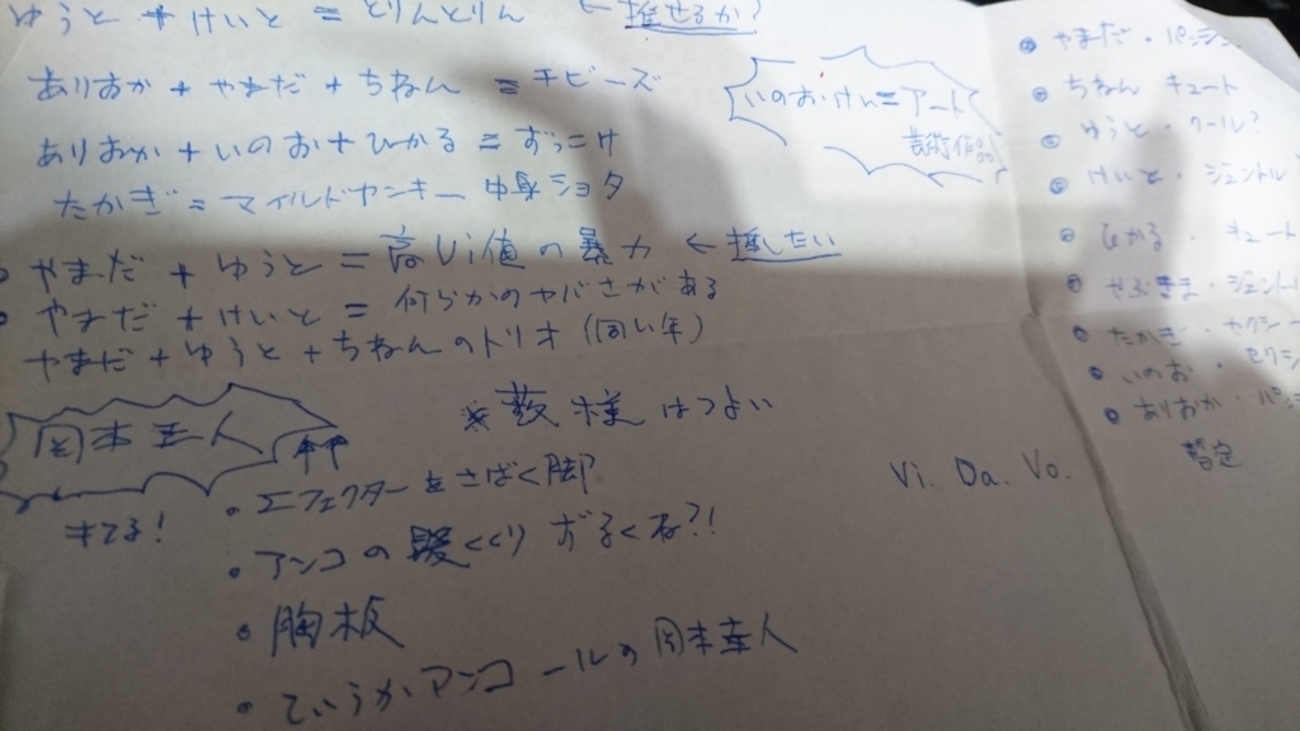 ゆうと + けいと = とりんとりん ← 推せるか?
ありおか + やまだ + ちねん = チビーズ
ありおか + いのお + ひかる = ずっこけ
たかぎ = マイルドヤンキー 中身ショタ
・やまだ + ゆうと = 高Vi値の暴力 ← 推したい
・やまだ + けいと = 何らかのヤバさがある
やまだ + ゆうと + ちねんのトリオ (同い年)
いのおけん=アート
芸術作品
・やまだ・パッシ
・ちねん キュート
・ゆうと・クール?
・けいと・ジェントル
・ひかる・キュート
・やぶ ・ジェントル
・たかぎ・セクシー
・いのお・セクシ
・ありおか・パッシ
暫定
Vi. Da. Vo.
※薮様はつよい
岡本圭人
きてる!
・エフェクターをさばく脚
・アンコの髪くくり ずるくね?!
・胸板
・ていうかアンコールの岡本圭人